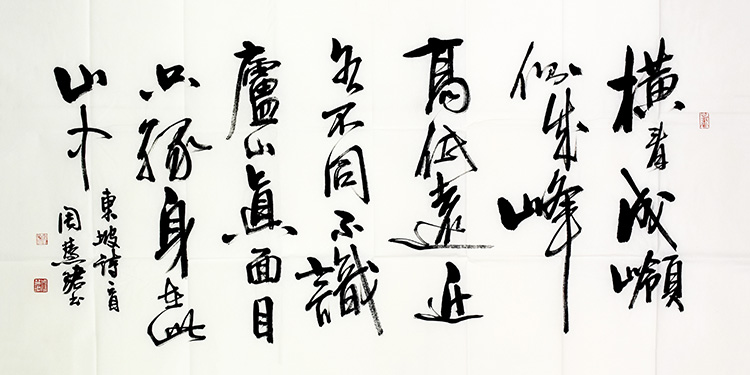 橫看成嶺
側成峰
高低遠近
各不同不識
廬山真面目
只緣身在此
山中
東坡詩一首
周慧珺書